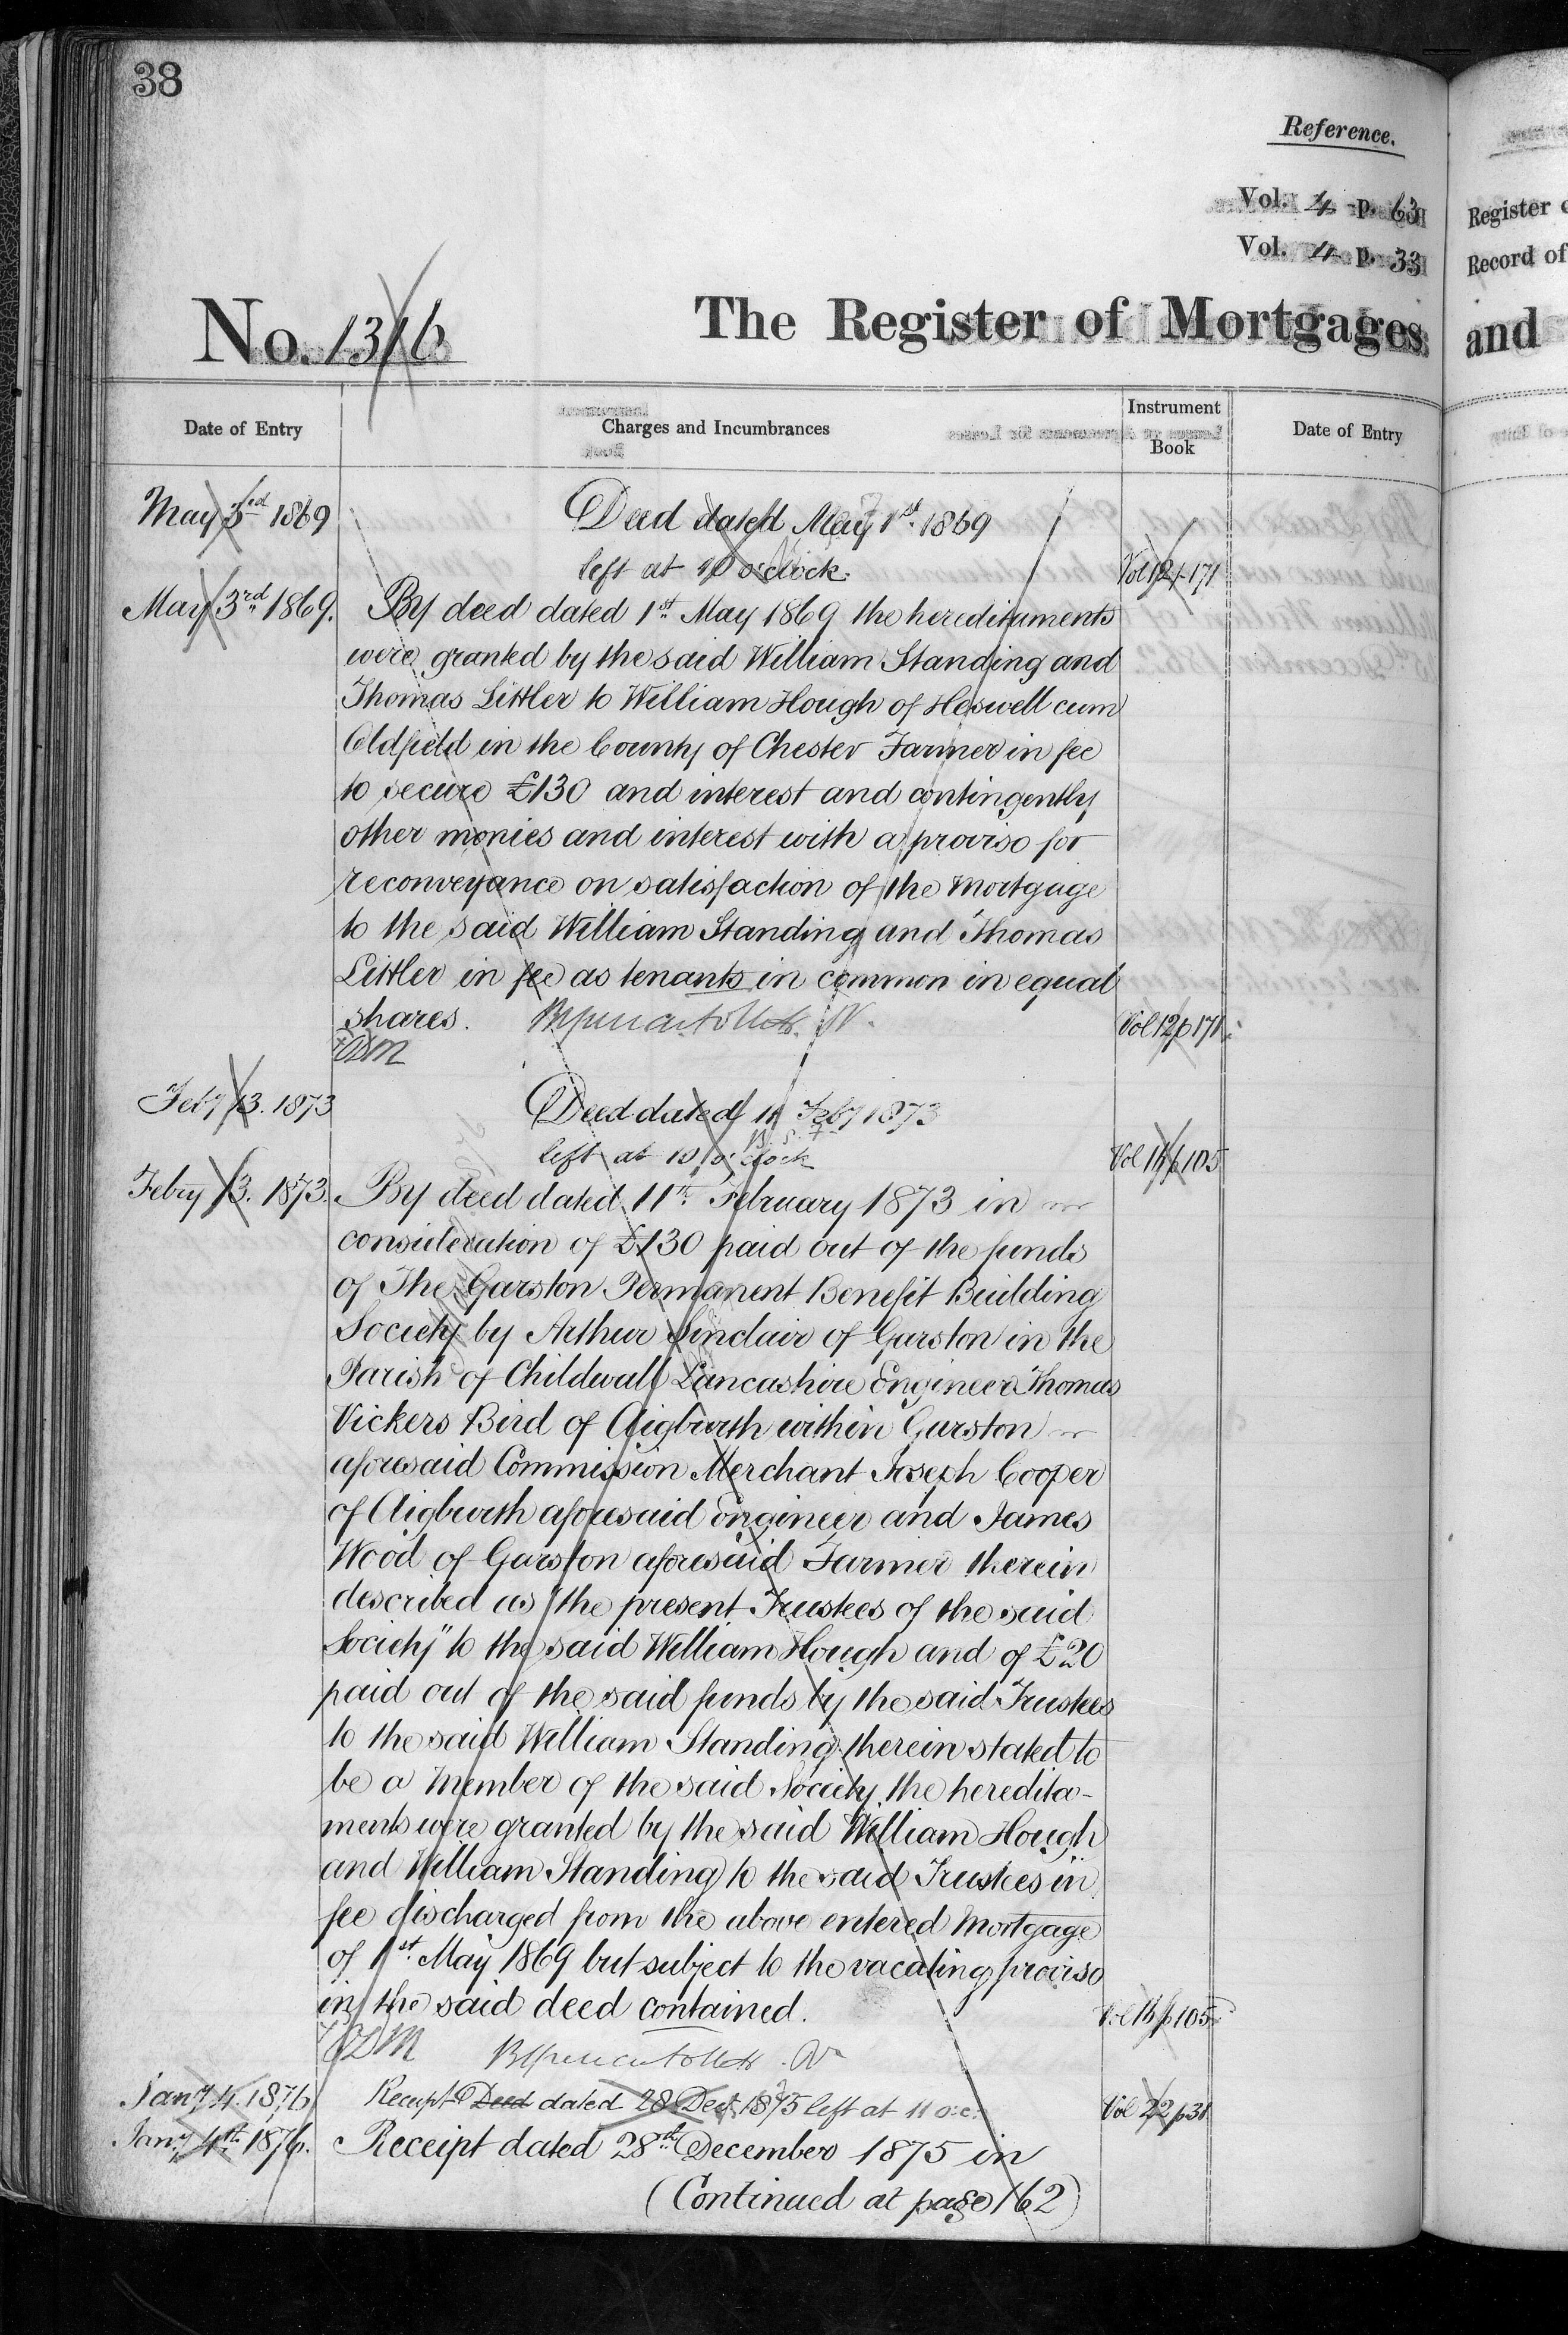 38
Reference.
Vol. 4 p. 63
Vol. 4 p. 33
Register
Record of
No. 1316
The Register of Mortgages
and
Date of Entry
Charges and Incumbrances
Instrument
Book
Date of Entry
May 3rd 1869
Deed dated May 1st 1869
left at 10 o'clock.
Vol 12 p 171
May 3rd 1869.
By deed dated 1st May 1869 the hereditaments
were granted by the said William Standing and
Thomas Littler to William Hough of Heswell cum
Oldfield in the County of Chester Farmer in fee
to secure £130 and interest and contingently
other monies and interest with a proviso for
reconveyance on satisfaction of the Mortgage
to the said William Standing and Thomas
Littler in fee as tenants in common in equal
shares.
Vol 12 p 171
Feby 13. 1873
Deed dated 11 Feby 1873
left at 10 o'clock
Vol 16 p 105
Febry 13. 1873.
By deed dated 11th February 1873 in
consideration of £130 paid out of the funds
of The Garston Permanent Benefit Building
Society by Arthur Sinclair of Garston in the
Parish of Childwall Lancashire Engineer Thomas
Vickers Bird of Aigburth within Garston
aforesaid Commission Merchant Joseph Cooper
of Aigburth aforesaid Engineer and James
Wood of Garston aforesaid Farmer therein
described as "the present Trustees of the said
Society" to the said William Hough and of £20
paid out of the said funds by the said Trustees
to the said William Standing therein stated to
be a Member of the said Society the heredita-
ments were granted by the said William Hough
and William Standing to the said Trustees in
fee discharged from the above entered Mortgage
of 1st May 1869 but subject to the vacating proviso
in the said deed contained.
Vol 16 p 105
Jany 4. 1876
Receipt Deed dated 28 Dec. 1875 left at 11 o.c.
Vol 22 p 31
Jany 4th 1876.
Receipt dated 28th December 1875 in
(Continued at page 162)